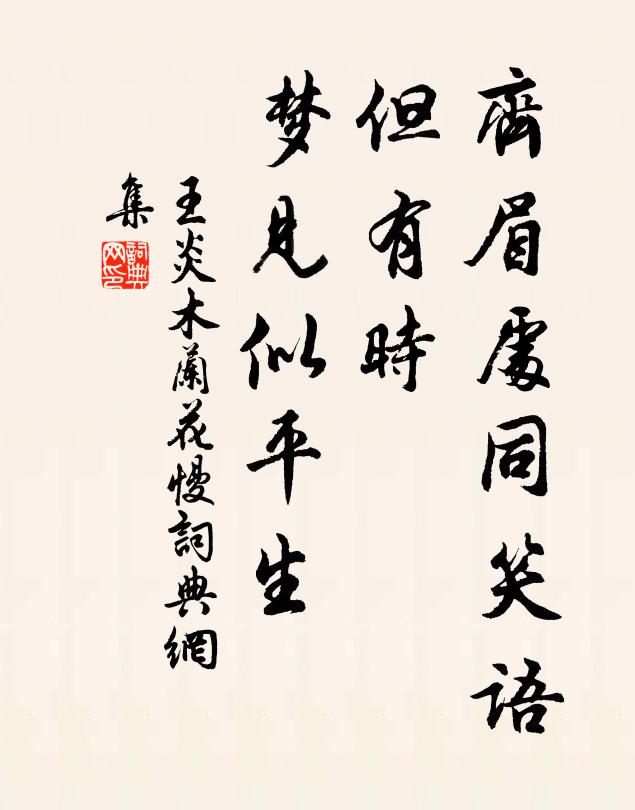 齊眉處同笑語
但有時
梦見似平生
王炎木蘭花慢詞典網
集
詞典网印